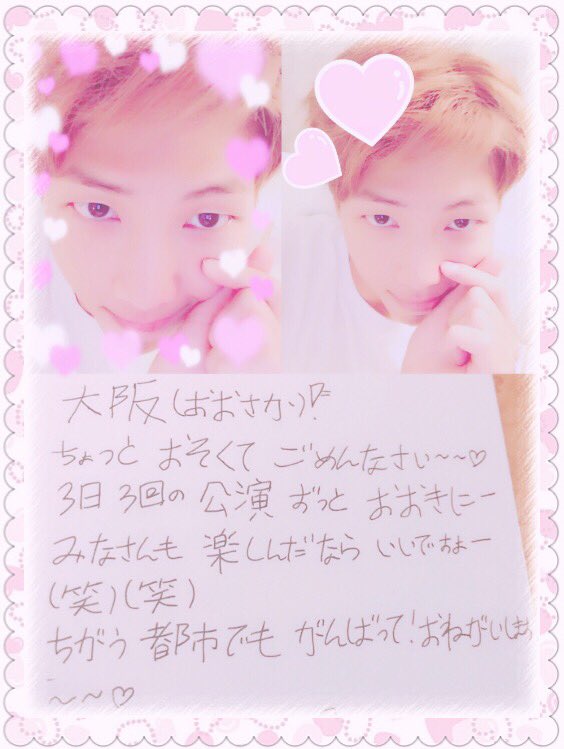 大阪(おおさか)!
ちょっと おそくて ごめんなさい~~♡
3日 3回の 公演 ずっと おおきにー
みなさんも 楽しんだなら いいですよー
(笑)(笑)
ちがう 都市でも がんばって!おねがいします
~~♡